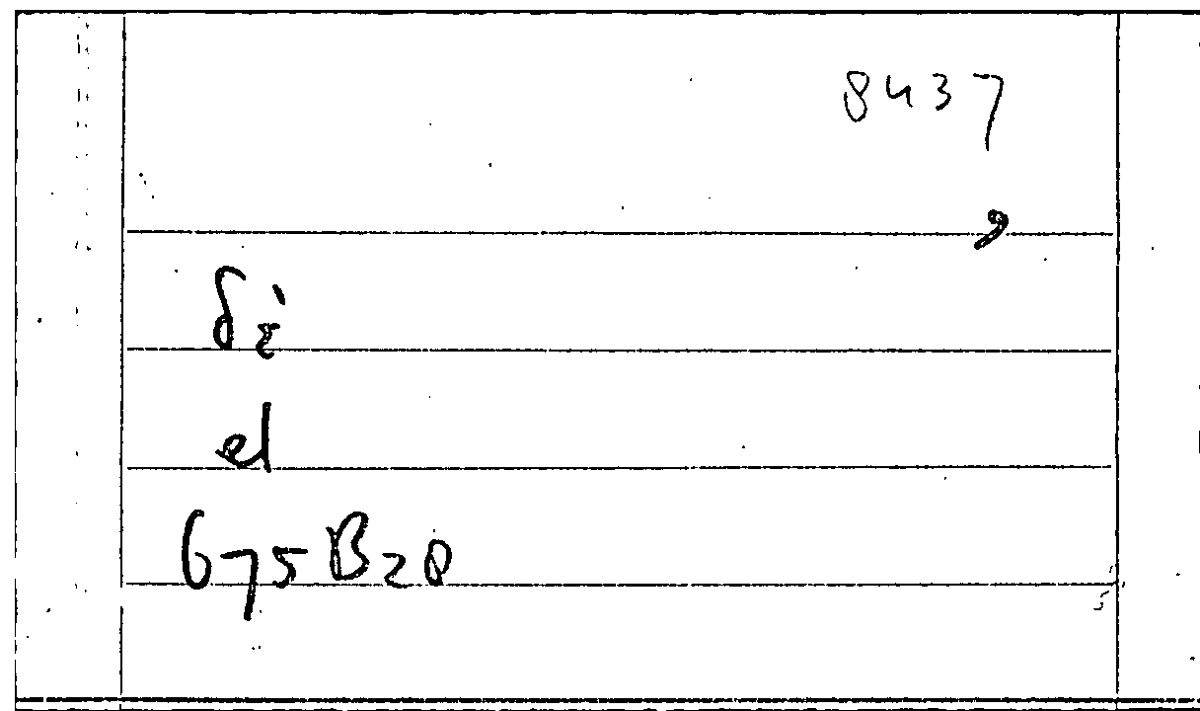 8437
,
el
675B20